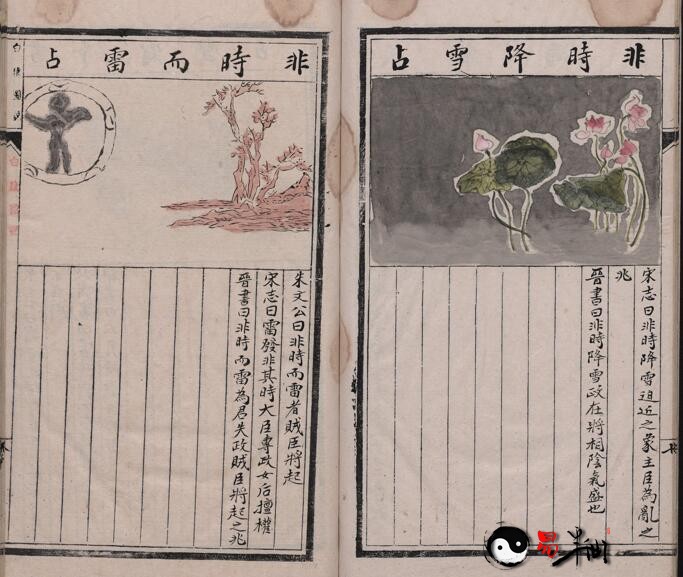 非時降雪占
宋志曰非時降雪迫近之象主臣為亂之
兆
晉書曰非時降雪政在將相陰氣盛也
非時而雷占
朱文公曰非時而雷者賊臣將起
宋志曰雷發非其時大臣專政女后擅權
晉書曰非時而雷為君失政賊臣將起之兆
易